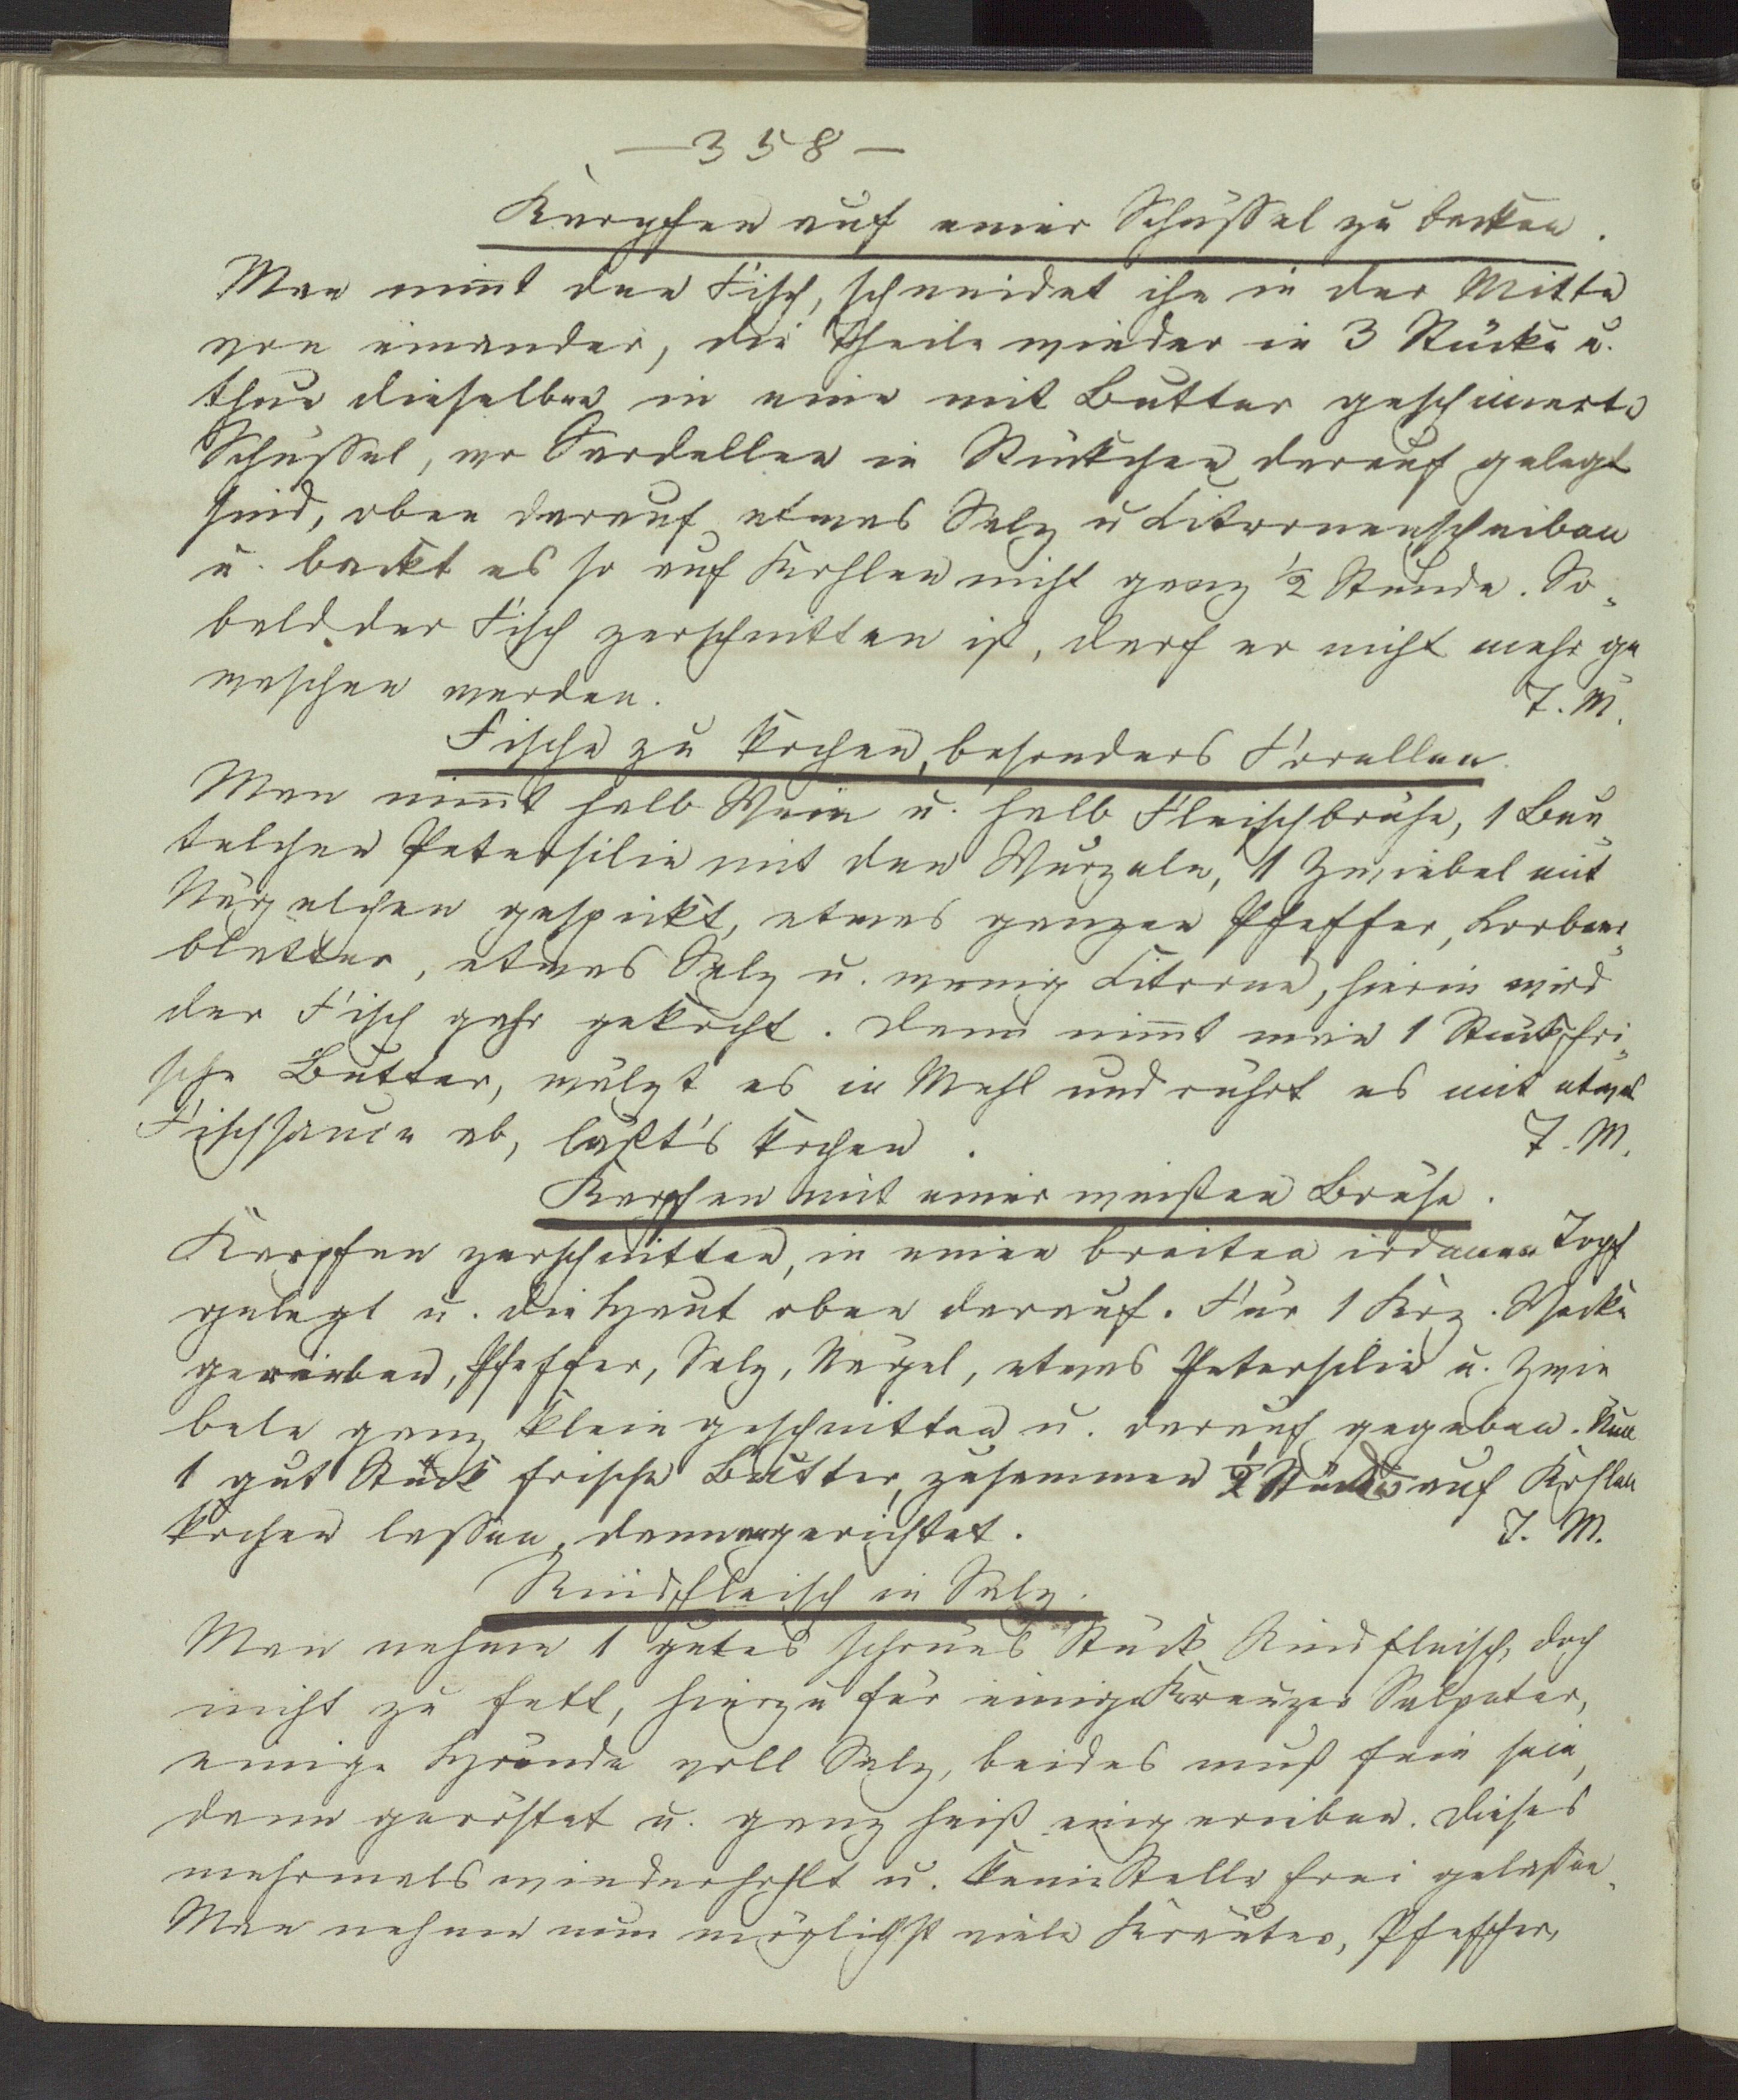 — 358 —
Karpfen auf einer Schüssel zu backen.
Man nim̅t den Fisch, schneidet ihn in der Mitte
von einander, die Theile wieder in 3 Stücke u.
thue dieselben in eine mit Butter geschmierte
Schüssel, wo Sardellen in Stückchen darauf gelegt
sind, oben darauf etwas Salz u Citronenscheiben
u. backt es so auf Kohlen nicht ganz ½ Stunde. So-
bald der Fisch zerschnitten ist, darf er nicht mehr ge
waschen werden. J. M.
Fische zu kochen, besonders Forellen.
Man nim̅t halb Wein u. halb Fleischbrühe, 1 Bun-
telchen Petersilie mit den Wurzeln, 1 Zwiebel mit
Nägelchen gespickt, etwas ganzen Pfeffer, Lorbeer-
blätter, etwas Salz u. wenig Citrone, hierin wird
der Fisch gahr gekocht. Dann nim̅t man 1 Stück fri-
sche Butter, wälzt es in Mehl und rührt es mit etwas
Fischsauce ab, laßt's kochen. J. M.
Karpfen mit einer weißen Brühe.
Karpfen zerschnitten, in einen breiten irdenen Topf
gelegt u. die Haut oben darauf. Für 1 Krz. Wecke
gerieben, Pfeffer, Salz, Nägel, etwas Petersilie u. Zwie
beln ganz klein geschnitten u. darauf gegeben. Nun
1 gut Stück frische Butter, zusammen ½ Stunde auf Kohlen
kochen lassen, dann angerichtet. J. M.
Rindfleisch in Salz.
Man nehme 1 gutes schönes Stück Rindfleisch, doch
nicht zu fett, hierzu für einige Kreuzer Salpeter,
einige Hände voll Salz, beides muß fein sein,
dann geröstet u. ganz heiß eingerieben. Dieses
mehrmals wiederhohlt u. keine Stelle frei gelassen.
Man nehme nun möglichst viele Kräuter, Pfeffer,